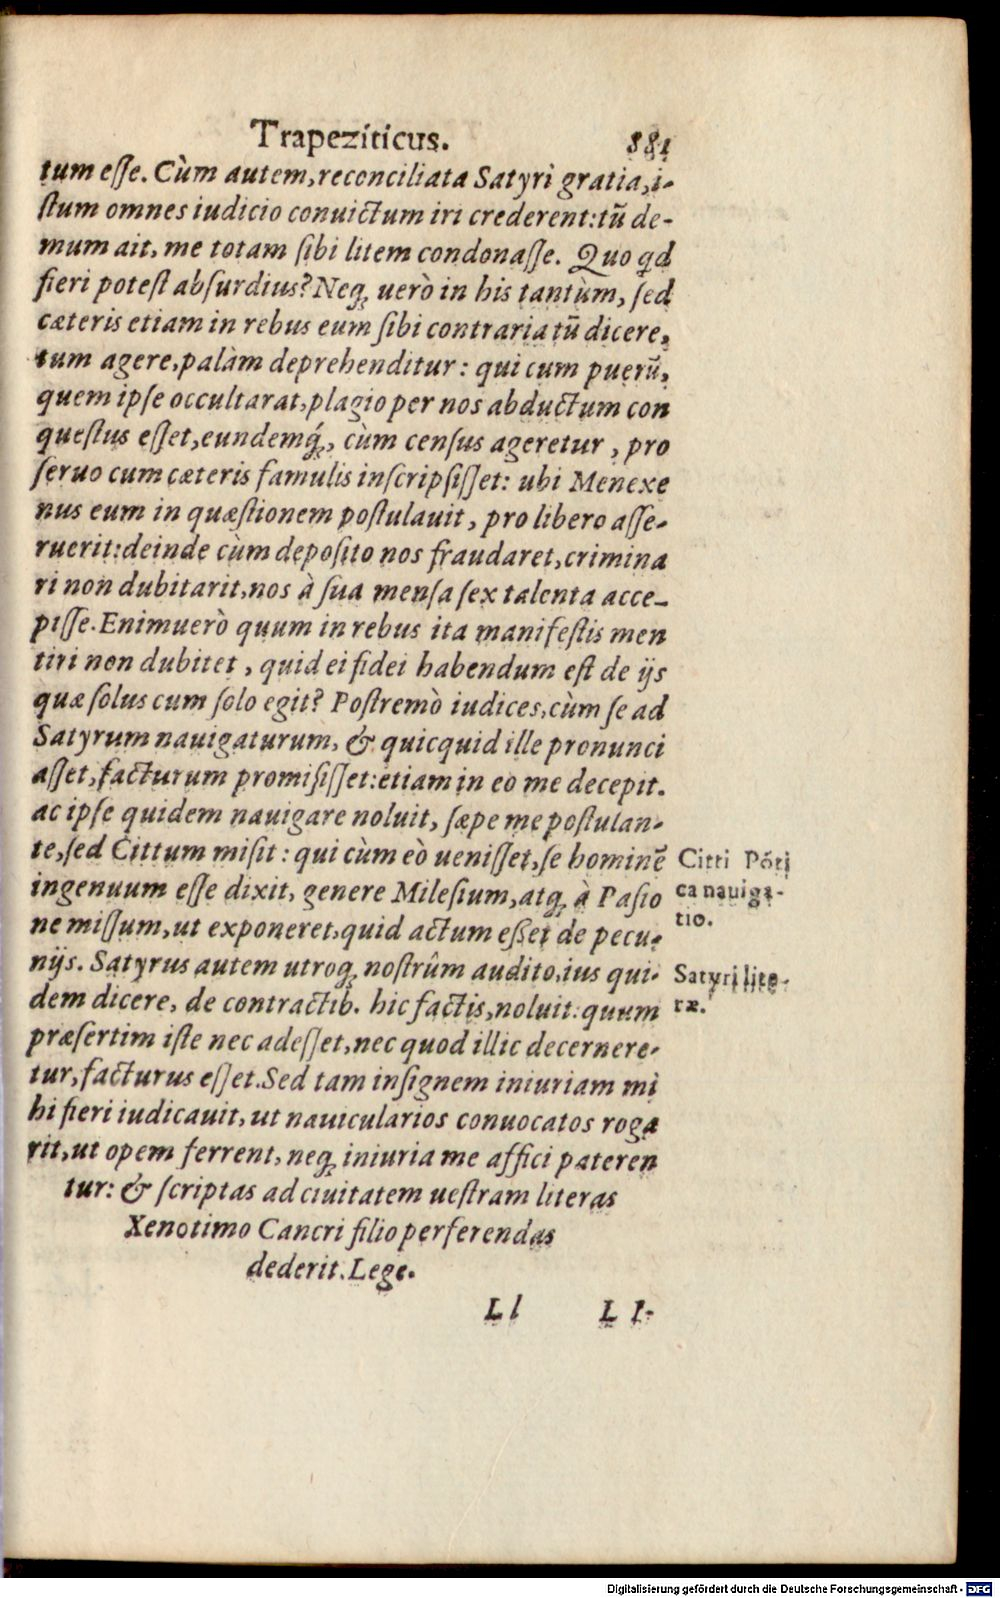 Trapeziticus. 881
tum esse. Cùm autem, reconciliata Satyri gratia, i-
stum omnes iudicio conuictum iri crederent: tũ de-
mum ait, me totam sibi litem condonasse. Quo qd
fieri potest absurdius? Neq; uerò in his tantùm, sed
cæteris etiam in rebus eum sibi contraria tũ dicere,
tum agere, palàm deprehenditur: qui cum puerũ,
quem ipse occultarat, plagio per nos abductum con
questus esset, eundemq́;, cùm census ageretur, pro
seruo cum cæteris famulis inscripsisset: ubi Menexe
nus eum in quæstionem postulauit, pro libero asse-
ruerit: deinde cùm deposito nos fraudaret, crimina
ri non dubitarit, nos à sua mensa sex talenta acce-
pisse. Enimuerò quum in rebus ita manifestis men
tiri non dubitet, quid ei fidei habendum est de ijs
quæ solus cum solo egit? Postremò iudices, cùm se ad
Satyrum nauigaturum, & quicquid ille pronunci
asset, facturum promisisset: etiam in eo me decepit.
ac ipse quidem nauigare noluit, sæpe me postulan-
te, sed Cittum misit: qui cùm eò uenisset, se hominẽ
ingenuum esse dixit, genere Milesium, atq; à Pasio
ne missum, ut exponeret, quid actum esset de pecu-
nijs. Satyrus autem utroq; nostrûm audito, ius qui-
dem dicere, de contractib. hic factis, noluit: quum
præsertim iste nec adesset, nec quod illic decernere-
tur, facturus esset. Sed tam insignem iniuriam mi
hi fieri iudicauit, ut nauicularios conuocatos roga
rit, ut opem ferrent, neq; iniuria me affici pateren
tur: & scriptas ad ciuitatem uestram literas
Xenotimo Cancri filio perferendas
dederit. Lege.
Ll L l-
Citti Pōti
ca nauiga-
tio.
Satyri lite-
ræ.
Digitalisierung gefördert durch die Deutsche Forschungsgemeinschaft - DFG